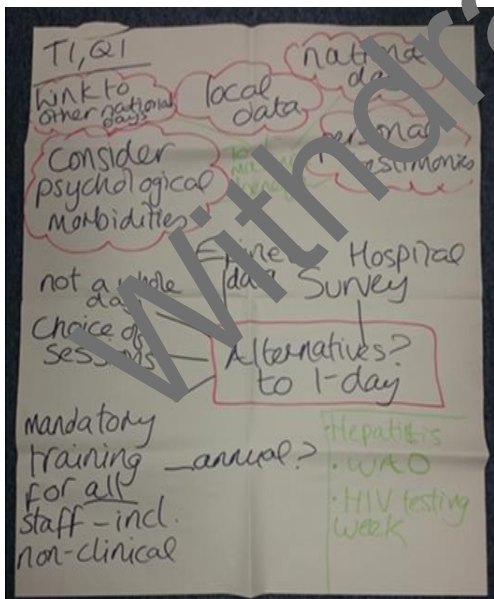 T1, Q1
Link to
other national
days
local
data
national
da
Consider
psychological
morbidities
personal
testimonies
Hospital
Survey
data
not a whole
day
Choice of
sessions
Alternatives?
to 1-day
mandatory
training
for all
staff - incl.
non-clinical
annual?
Hepatitis
• WAD
• HIV testing
week
Withdra